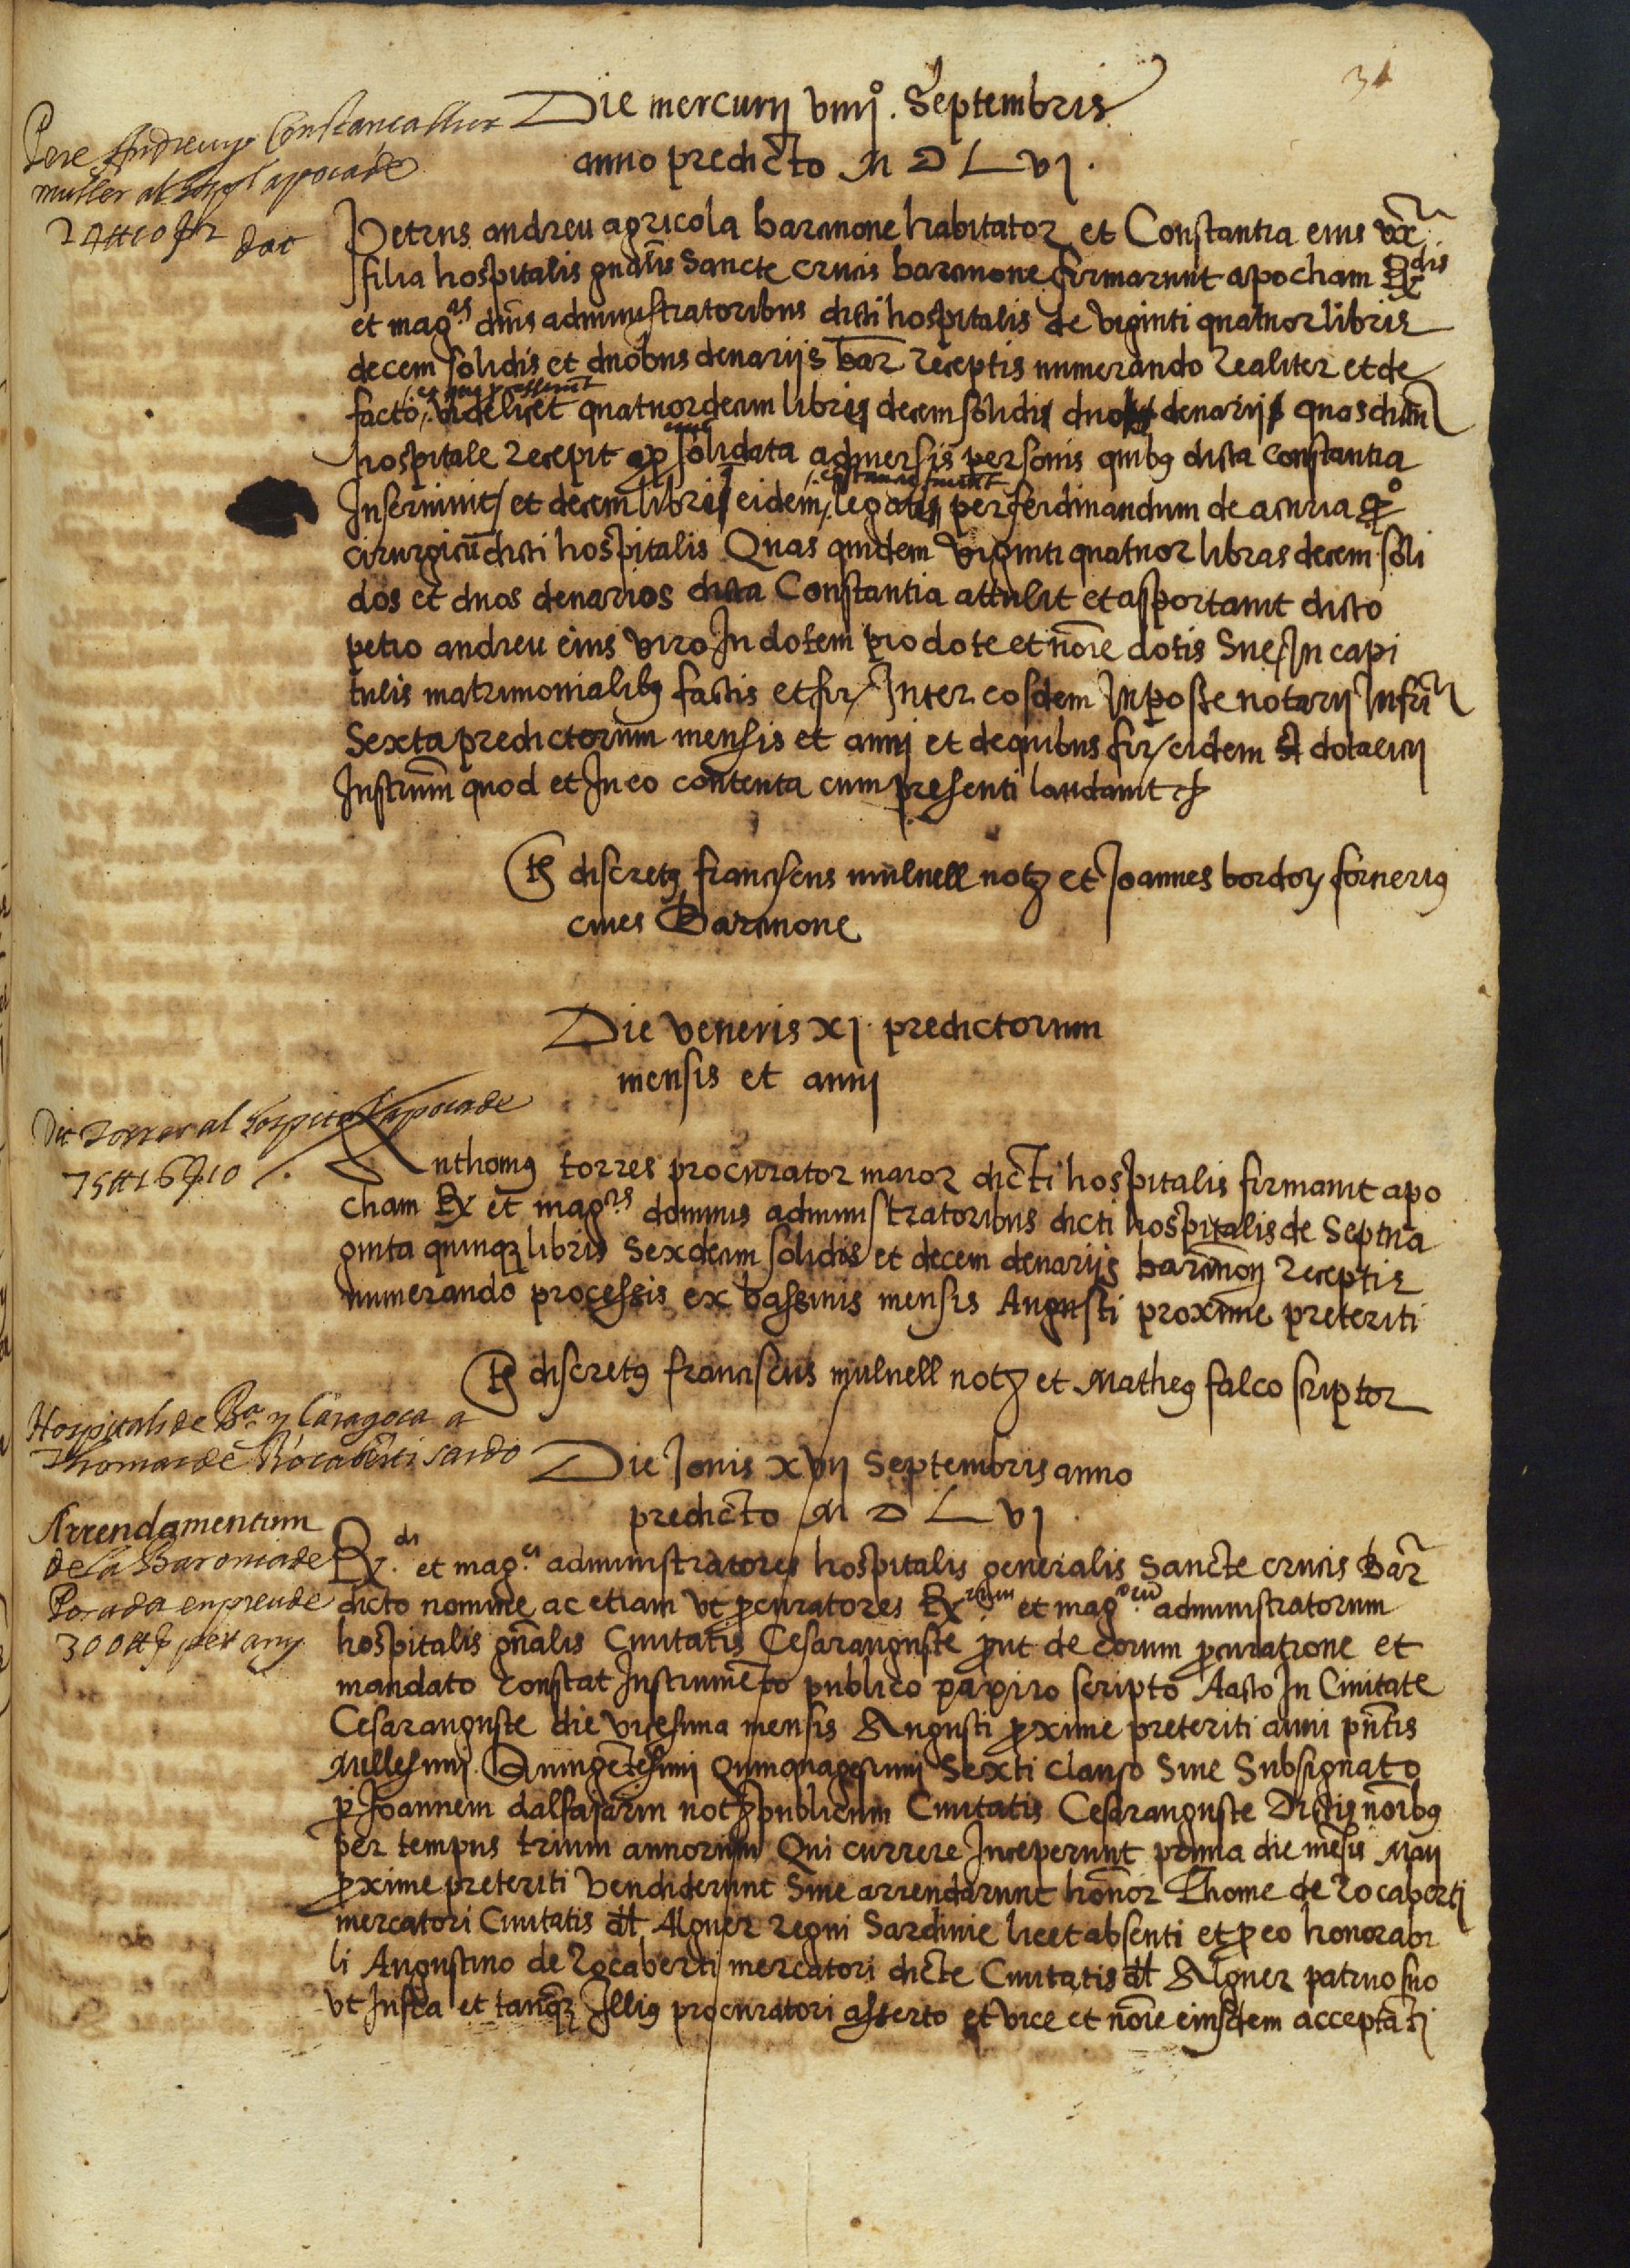 31
Die mercurij viiijº. Septembris
anno predicto M D L vj.
Pere Andreu y Constanca sa
muller al Hospl apoca de
24 tt 10 ß 2 dot
Petrus andreu agricola barcinone habitator et Constantia eius vx.
filia hospitalis gnalis Sancte crucis barcinone firmarunt apocham Rdis
et magcis dnis administratoribus dicti hospitalis de viginti quatuor libris
decem solidis et duobus denarijs bar receptis numerando realiter et de
facto videlicet quatuordecim libris decem solidis denarijs quas dictum
hospitale recepit solidata a diuersis personis quibq dicta Constantia
Inseruiuit et decem libris eidem perferdinandum de
cirurgicu dicti hospitalis Quas quidem viginti quatuor libras decem soli
dos et duos denarios dicta Constantia attulit et asportauit dicto
petro andreu eius viro In dotem pro dote et noie dotis sue In capi
tulis matrimonialibq factis et fir Inter eosdem In posse notarij Infri
Sexta predictorum mensis et anni et de quibus fir eidem dotalicij
Instrum quod et In eo contenta cum presenti laudauit
ts discretq franciscus mulnell notz et Joannes bordoy forneriq
ciues Barcinone
Die veneris xj. predictorum
mensis et anni
Dit Torres al hospital apoca de
75 tt 16 ß 10
Anthoniq torres procurator maior dicti hospitalis firmauit apo
cham Rx et magcis dominis administratoribus dicti hospitalis de Septua
ginta quinqz libris Sexdecim solidis et decem denarijs barcinon receptis
numerando processis ex bassinis mensis Augusti proxime preteriti
ts discretq franciscus mulnell notz et Matheq falco scriptor
Hospitals de Bª y Caragoca a
Thomas de Rocaberti sardo
Die Jouis xvij Septembris anno
predicto M D L vj
Arrendamentum
de la Baronia de
Posada en preu de
300 tt per any
Rx.di et mag.ci administratores hospitalis generalis Sancte crucis Bar
dicto nomine ac etiam vt pcuratores Rx.rum et mag.corum administratorum
hospitalis gnalis Ciuitatis Cesarauguste put de eorum pcuratione et
mandato constat Instrumeto publico papiro scripto Aacto In Ciuitate
Cesarauguste die vicesima mensis Augusti pxime preteriti anni pntis
Millesimi Quingetesimi Quinquagesimi Sexti clauso Siue Subsignato
p Joannem dalfajarin notz publicum Ciuitatis Cesarauguste Dictis noibq
per tempus trium annorum Qui currere Inceperunt prima die mesis Maij
pxime preteriti Vendiderunt Siue arrendarunt honor Thome de rocaberti
mercatori Ciuitatis dl Alguer regni Sardinie licet absenti et p eo honorabi
li Augustino de rocaberti mercatori dicte Ciuitatis dl Alguer patruo suo
vt Infra et tanqz Illiq procuratori asserto et vice et noie eiusdem acceptati